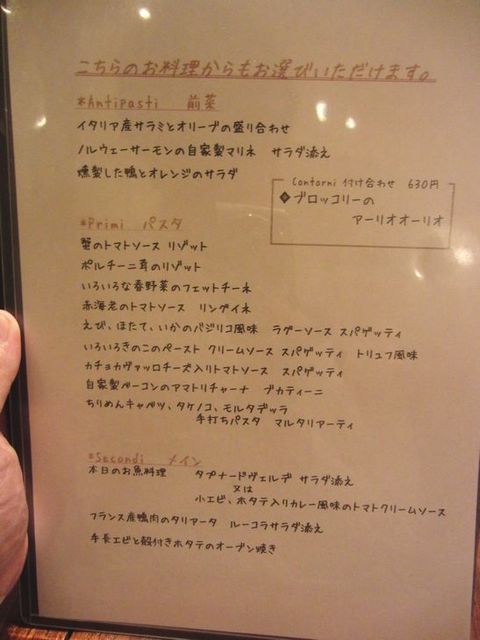 こちらのお料理からもお選びいただけます。
*Antipasti 前菜
イタリア産サラミとオリーブの盛り合わせ
ノルウェーサーモンの自家製マリネ サラダ添え
燻製した鴨とオレンジのサラダ
Contorni 付け合わせ 630円
◆ブロッコリーの
アーリオオーリオ
*Primi パスタ
蟹のトマトソース リゾット
ポルチーニ茸のリゾット
いろいろな春野菜のフェットチーネ
赤海老のトマトソース リングイネ
えび、ほたて、いかのバジリコ風味 ラグーソース スパゲッティ
いろいろきのこのペースト クリームソース スパゲッティ トリュフ風味
カチョカヴァッロチーズ入りトマトソース スパゲッティ
自家製ベーコンのアマトリチャーナ ブカティーニ
ちりめんキャベツ、タケノコ、モルタデッラ
手打ちパスタ マルタリアーティ
*Secondi メイン
本日のお魚料理 タプナードヴェルデ サラダ添え
又は
小エビ、ホタテ入りカレー風味のトマトクリームソース
フランス産鴨肉のタリアータ ルーコラサラダ添え
手長エビと殻付きホタテのオーブン焼き